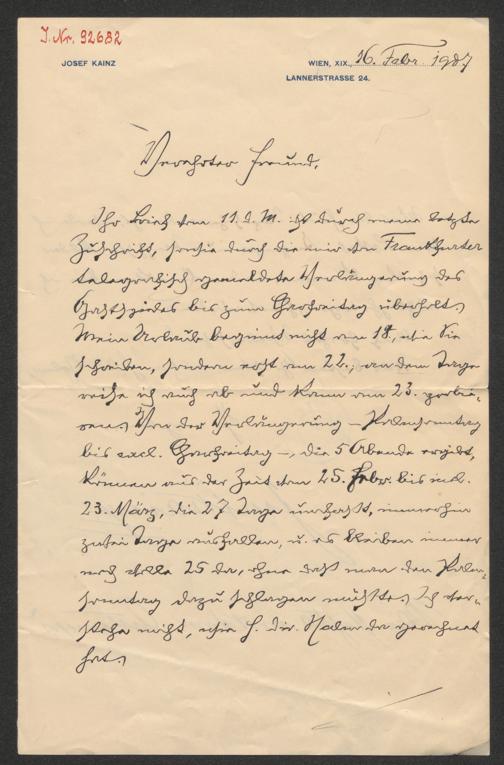 I. Nr. 92682
JOSEF KAINZ
WIEN, XIX., 16. Febr. 1907
LANNERSTRASSE 24.
Verehrter Freund,
Ihr Brief vom 11. d. M. ist durch meine letzte
Zuschrift, sowie durch die mir von Frankfurter
telegraphisch gemeldete Verlängerung des
Gastspieles bis zum Charfreitag überholt.
Mein Urlaub beginnt nicht am 18., wie Sie
schreiben, sondern erst am 22.; an dem Tage
reise ich auch ab und kann am 23. probie-
ren. Von der Verlängerung – Palmsonntag
bis excl. Charfreitag –, die 5 Abende ergibt,
können aus der Zeit vom 25. Febr. bis incl.
23. März, die 27 Tage umfasst, immerhin
zwei Tage ausfallen, u. es bleiben immer
noch volle 25 da, ohne daß man den Palm-
sonntag dazu schlagen müsste. Ich ver-
stehe nicht, wie H. Dir. Halm da gerechnet
hat.